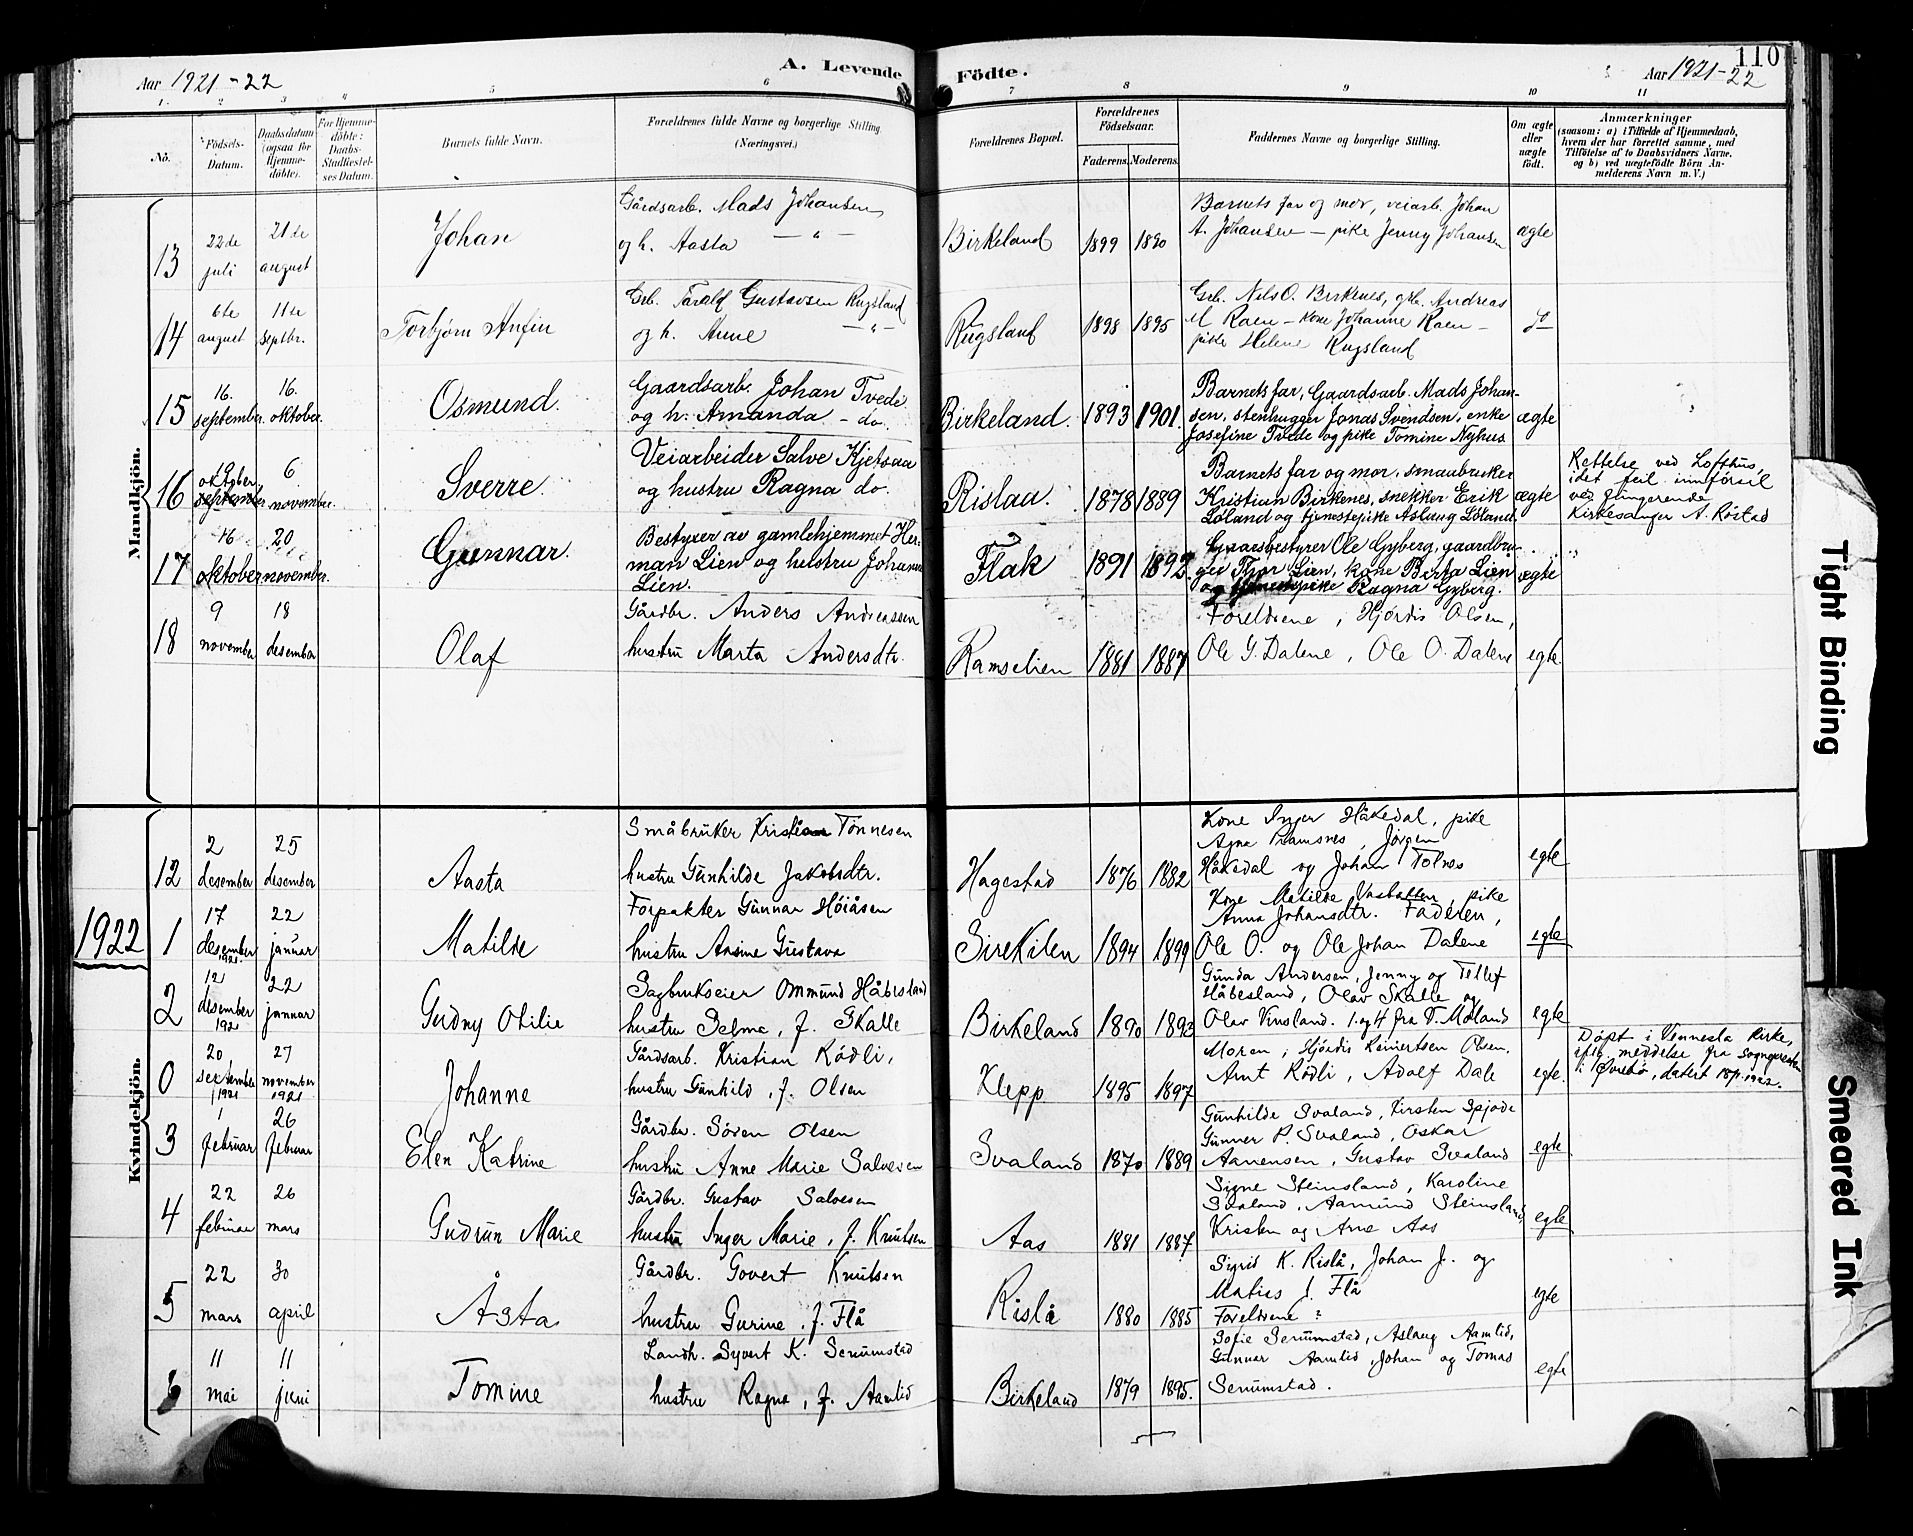 110
Aar 1921-22
A. Levende
Födte.
Aar 1921-22
1.
2
3
4
5
6
7
8
9
10
11
No.
Födsels-
Datum.
Daabsdatum
(ogsaa for
Hjemme-
döbte).
For Hjemme-
döbte:
Daabs-
Stadfæstel-
ses Datum.
Barnets fulde Navn.
Forældrenes fulde Navne og borgerlige Stilling
(Næringsvei.)
Forældrenes Bopæl.
Forældrenes
Födselsaar.
Faderens.
Moderens.
Faddernes Navne og borgerlige Stilling.
Om ægte
eller
uægte
födt.
Anmærkninger
(saasom: a) i Tilfælde af Hjemmedaab,
hvem der har forrettet samme, med
Tilföielse af to Daabsvidners Navne.
og b) ved uægtefödte Börn An-
melderens Navn m. V.)
Mandkjön.
13
22de
juli
21de
august
Johan
Gårdsarb. Mads Johansen
og h. Aasta — " —
Birkeland
1899
1890
Barnets far og mor, veiarb. Johan
A. Johansen — pike Jenny Johansen
ægte
14
6te
august
11te
Septbr.
Torbjørn Anfin
Grb. Tarald Gustavsen Rugsland
og h. Anne — " —
Rugsland
1898
1895
Grb. Nels O. Birkenes, grb. Andreas
M Raen — Kone Johanne Raen —
pike Helene Rugsland
do
15
16.
september.
16.
oktober.
Osmund.
Gaardsarb. Johan Tvede
og h. Amanda — do.
Birkeland.
1893
1901.
Barnets far, Gaardsarb. Mads Johan-
sen, stenhugger Jonas Svendsen, enke
Josefine Tvede og pike Tomine Nyhus
ægte
16
9
oktober.
september
6.
november.
Sverre.
Veiarbeider Salve Kjetsaa
og hustru Ragna do.
Rislaa.
1878
1889
Barnets far og mor, smaabruker
Kristian Birkenes, snekker Erik
Løland og tjenestepike Aslaug Løland.
ægte
Rettelse ved Lofthus,
idet feil innförsil
ved fungerende
Kirkesanger A. Røstad
17
16
oktober
20
november.
Gunnar.
Bestyrer av gamlehjemmet Her-
man Lien og hustru Johanna
Lien.
Flak
1891
1892
Ole Gyberg, gaardbru-
ger Thor Lien, kone Berta Lien
og tjenestepike Ragna Gyberg.
ægte
18
9
november
18
desember
Olaf
Gårdbr. Anders Andreassen
hustru Marta Andersdtr.
Ramselien
1881
1887
Foreldrene, Hjördis Olsen,
Ole G. Dalene, Ole O. Dalene
egte.
Kvindekjön.
12
2
desember
25
desember
Aasta
Småbruker Kristian Tönnesen
hustru Gunhilde Jakobsdtr.
Hagestad
1876
1882
Kone Inger Håkedal, pike
Agne Ramsnes, Jørgen
Håkedal og Johan Tolnes
egte
1922
1
17
desember
1921.
22
januar
Matilde
Forpakter Gunnar Höiåsen
hustru Aasine Gustava
Sirekilen
1894
1899
Kone Matilde Vastatten, pike
Anna Johansdtr. Faderen,
Ole O. og Ole Johan Dalene
egte
2
12
desember
1921
22
januar
Gudny Otilie
Sagbrukseier Ommund Håbesland
hustru Selma, f. Skalle
Birkeland
1890
1893
Gunda Andersen, Jenny og Tellef
Håbesland, Olav Skalle og
Olav Vinsland. 1. og 4 fra T. Moland
egte
0
20
september
1921
27
november
1921
Johanne
Gårdsarb. Kristian Rödli,
hustru Gunhild, f. Olsen
Klepp
1895
1897
Moren, Hjördis Reinertsen Olsen.
Arnt Rödli, Adolf Dale
egte.
Döpt i Vennesla Kirke,
iflg. meddelse fra sognepresten
i Øvrebø, datert 18/1.1922.
3
1
februar
26
februar
Elen Katrine
Gårdbr. Sören Olsen
hustru Anne Marie Salvesen
Svaland
1870
1889
Gunhilde Svaland, Kirsten Spjode
Gunner P. Svaland, Oskar
Aanensen, Gustav Svaland
egte
4
22
februar
26
mars
Gudrun Marie
Gårdbr. Gustav Salvesen
hustru Inger Marie, f. Knutsen
Aas
1881
1887
Signe Steinsland, Karoline
Svaland, Aamund Steinsland,
Kristen og Arne Aas
egte
5
22
mars
30
april
Åsta
Gårdbr. Govert Knutsen
hustru Gurine, f. Flå
Rislå
1880
1885
Sigrid K. Rislå, Johan J. og
Matias J. Flå
Foreldrene?
egte
6
11
mai
11
juni
Tomine
Landh. Syvert K. Senumstad
hustru Ragna, f. Aamlid
Birkeland
1879
1895.
Sofie Senumstad, Aslaug Aamlid,
Gunnar Aamlid, Johan og Tomas
Senumstad.
egte
Tight Binding
Smeared Ink